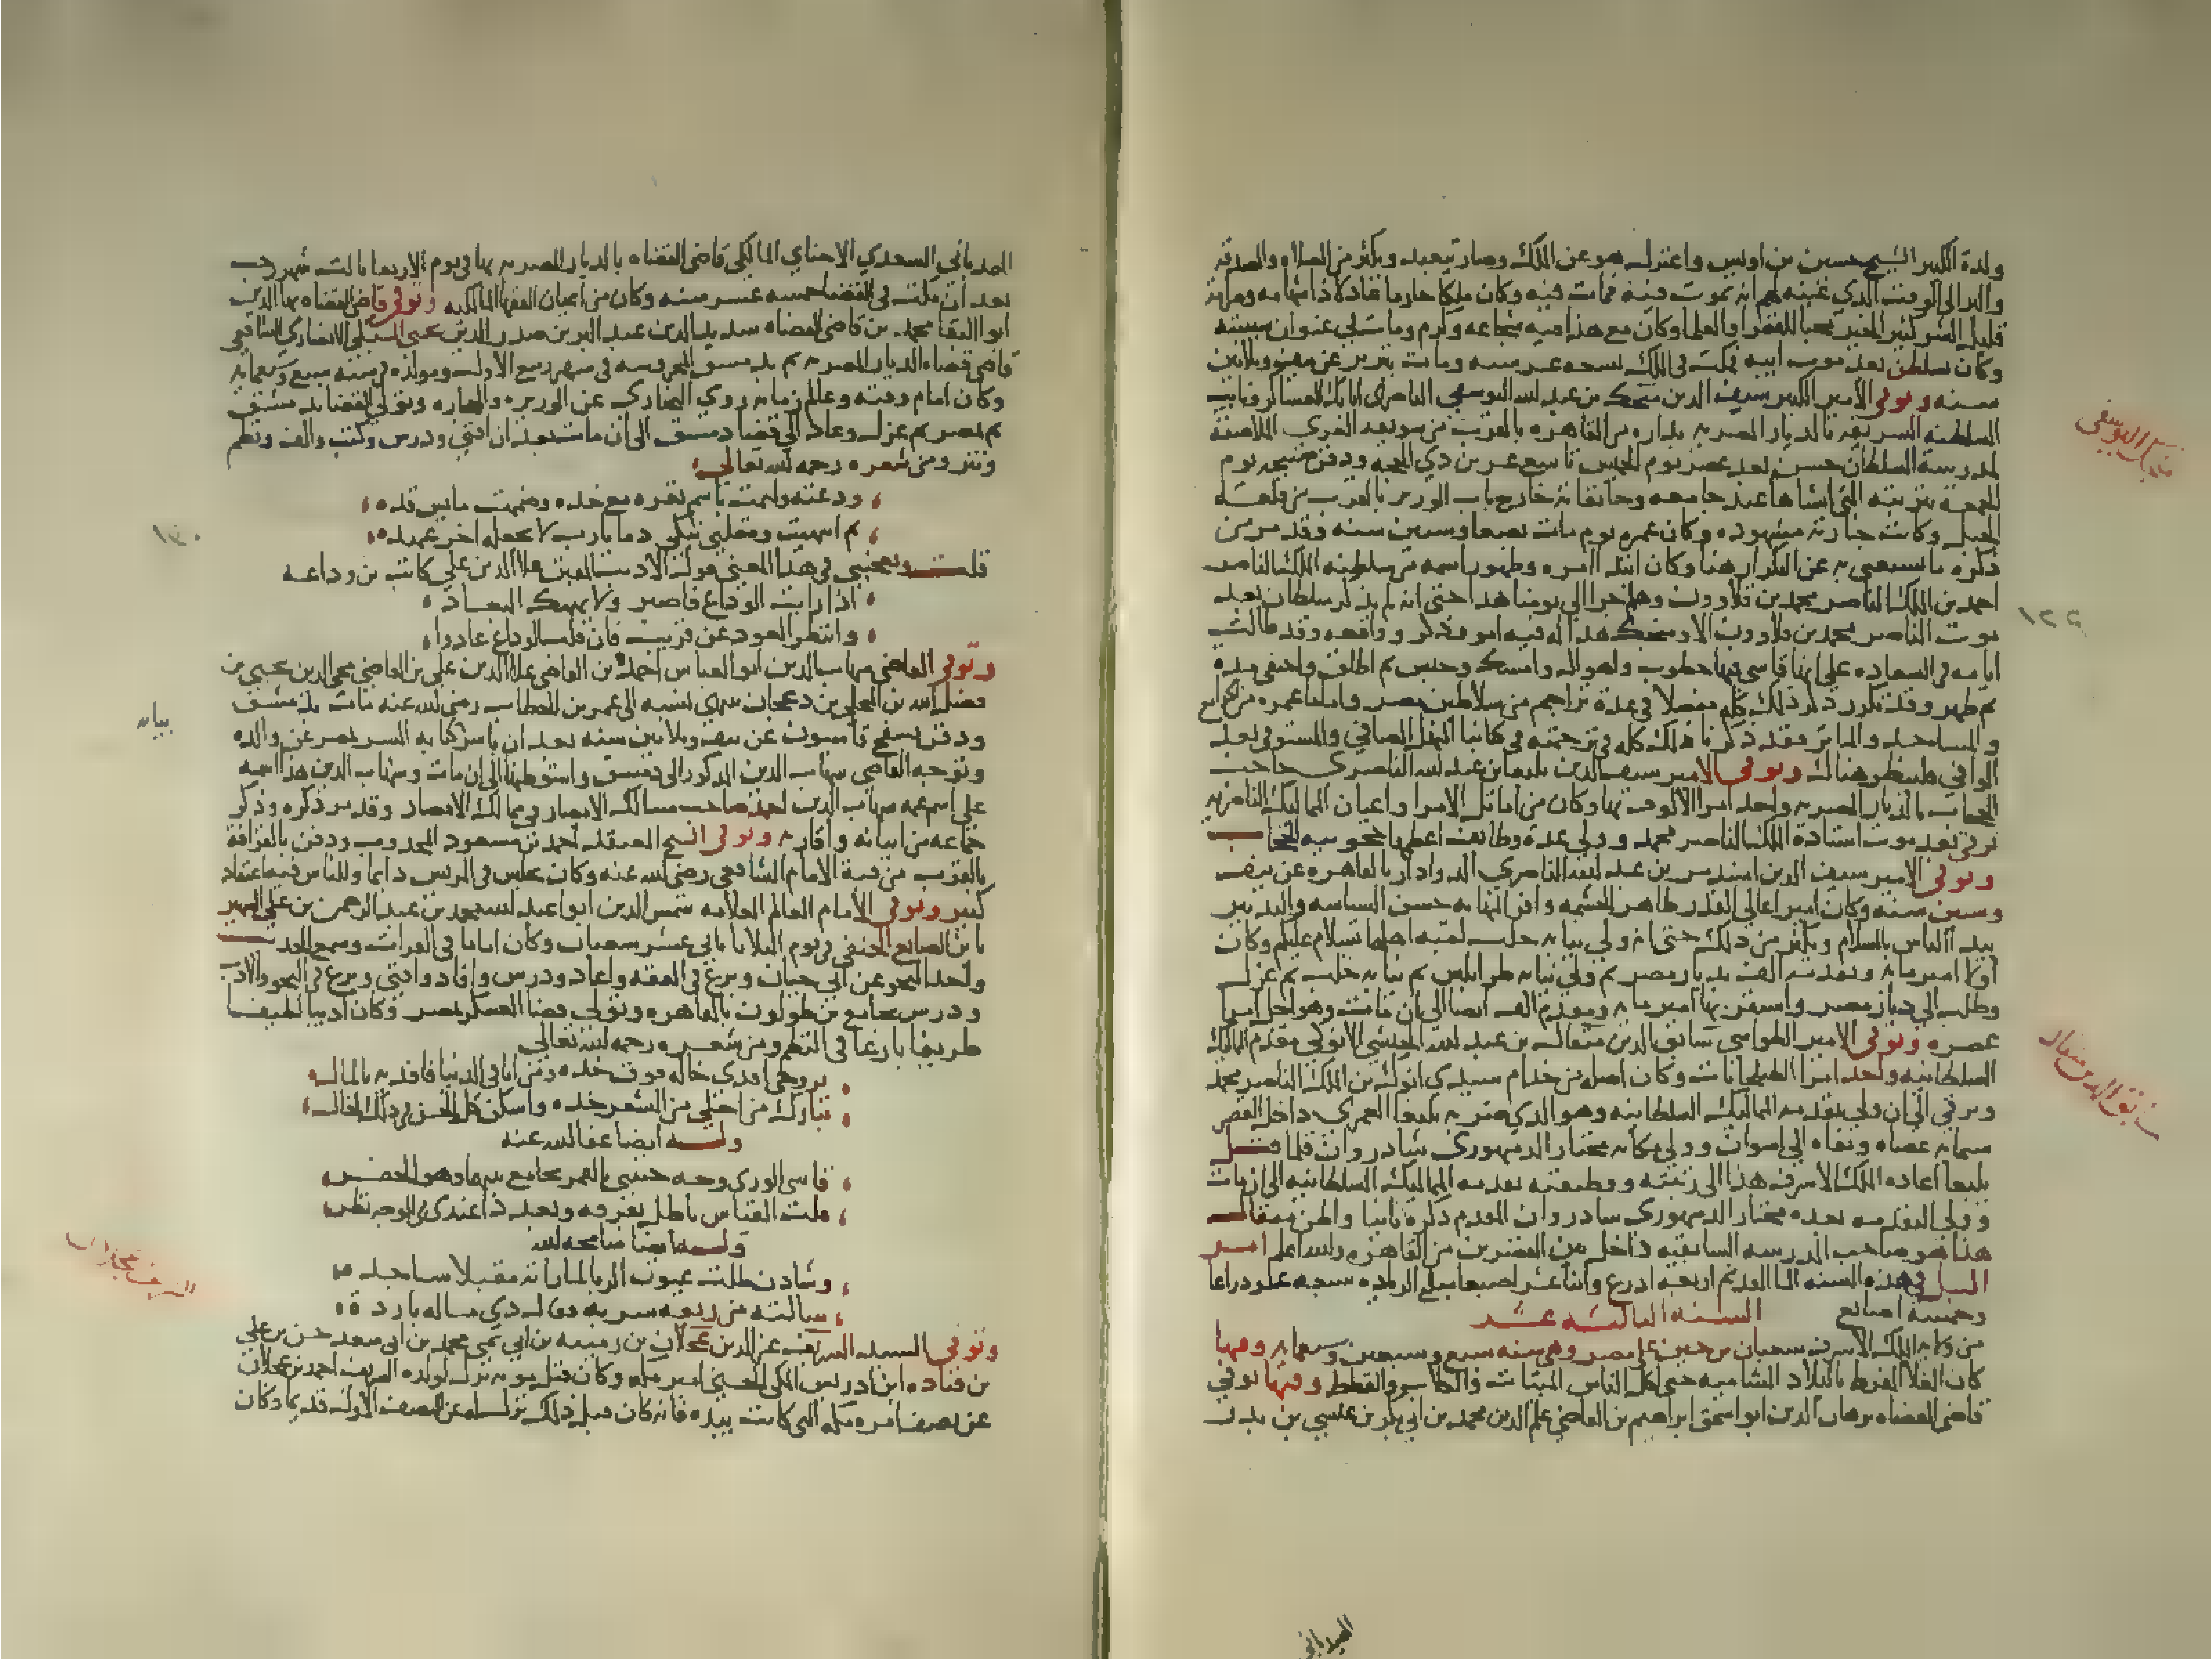 ولده الكبير الشيخ حسين بن اويس واعتزل هو عن الملك وصار يتعبد ويكثر من الصلاه والصدقه
والبر الى الوقت الذي عينه لهم انه يموت فيه فمات فيه وكان ملكا حازما عادلا ذا شهامه وصرامه
قليل الشر كثير الخير محبا للفقرا والعلما وكان مع هذا فيه شجاعه وكرم ومات في عنوان شبيبته
وكان تسلطن بعد موت ابيه فمكث في الملك تسعه عشر سنه ومات بتبريز عن نيف وثلاثين
سنه وتوفي الأمير الكبير سيف الدين منجك بن عبد الله اليوسفي الناصري اتابك العساكر ونايب
السلطنه الشريفه بالديار المصريه بداره من القاهره بالقرب من سويقه العزي الملاصقة
لمدرسة السلطان حسن بعد عصر يوم الخميس تاسع عشرين ذي الحجه ودفن صبيحه يوم
الجمعة بتربته التي انشاها عند جامعه وخانقاته خارج باب الوزير بالقرب من قلعة
الجبل وكانت جنازته مشهوده وكان عمره يوم مات بضعا وستين سنه وقد مر من
ذكره ما يستغنى به عن التكرار هنا وكان ابتدا امره وظهور اسمه من سلطنه الملك الناصر
احمد بن الملك الناصر محمد بن قلاوون وهلم جرا الى يومنا هذا حتى انه لم يذكر سلطان بعد
موت الناصر محمد بن قلاوون الا ومنجك هذا له فيه امر مذكور وواقعه وقد طالت
ايامه في السعاده على انه قاسى فيها خطوب واهوال وامسك وحبس ثم اطلق واختفى مده
ثم ظهر وقد تكرر ذكر ذلك كله مفصلا في عدة تراجم من سلاطين مصر واما ما عمره من الجوامع
والمساجد والماثر فقد ذكرنا ذلك كله في ترجمته في كتابنا المنهل الصافي والمستوفى بعد
الوافي فلينظر هناك وتوفي الأمير سيف الدين يلبغا بن عبد الله الناصري حاجب
الحجاب بالديار المصريه واحد امرا الالوف بها وكان من اماثل الامرا واعيان المماليك الناصريه
ترقى بعد موت استاذه الملك الناصر محمد وولي عدة وظايف اعظمها حجوبيه الحجاب
وتوفي الامير سيف الدين اسندمر بن عبد الله الناصري الدوادار بالقاهره عن نيف
وستين سنه وكان اميرا عالي القدر ظاهر الحشمه وافر المهابه حسن السياسه والتدبير
يبدا الناس بالسلام ويكثر من ذلك حتى انه لما ولي نيابه حلب لقبه اهلها سلام عليكم وكان
اولا امير مايه ومقدم الف بديار مصر ثم ولي نيابه طرابلس ثم نيابه حلب ثم عزل
وطلب الى ديار مصر واستقر بها امير مايه ومقدم الف ايضا الى ان مات وهو اجل امرا
عصره وتوفي الامير الطواشي سابق الدين مثقال بن عبد الله الحبشي الانوكي مقدم المماليك
السلطانيه واحد امرا الطبلخانات وكان اصله من خدام سيدي انوك بن الملك الناصر محمد
وترقى الى ان ولي تقدمه المماليك السلطانيه وهو الذي ضربه يلبغا العمري داخل القصر
ستمايه عصاه ونفاه الى اسوان وولى مكانه مختار الدمنهوري شادروان فلما قتل
يلبغا اعاده الملك الاشرف هذا الى رتبته ووظيفته تقدمه المماليك السلطانيه الى ان مات
وولي التقدمه بعده مختار الدمنهوري شادروان المقدم ذكره ثانيا واظن مثقال
هذا هو صاحب المدرسه السابقيه داخل بين القصرين من القاهره والله اعلم امر
النيل في هذه السنه الما القديم اربعه اذرع واثنا عشر اصبعا مبلغ الزياده سبعه عشر ذراعا
وخمسة اصابع السنه الثالثه عشر
من ولايه الملك الاشرف شعبان بن حسين على مصر وهي سنه سبع وسبعين وسبعمايه وفيها
كان الغلا المفرط بالبلاد الشاميه حتى اكل الناس الميتات والكلاب والقطط وفيها توفي
قاضي القضاه برهان الدين ابو اسحق ابراهيم بن القاضي علم الدين محمد بن ابي بكر بن عيسى بن بدر
منجك اليوسفي
سابق الدين مثقال
الصدماني
الصدماني السعدي الاخناي المالكي قاضي القضاه بالديار المصريه بها في يوم الاربعا ثالث شهر رجب
بعد ان مكث في القضا خمسه عشر سنه وكان من اعيان الفقها المالكيه وتوفي قاضي القضاه بها الدين
ابو البقا محمد بن قاضي القضاه سديد الدين عبد البر بن صدر الدين يحيى السبكي الانصاري الشافعي
قاضي قضاه الديار المصريه ثم بدمشق المحروسه في شهر ربيع الأول ومولده في سنه سبع وسبعمايه
وكان امام وقته وعالم زمانه روى البخاري عن الوزيره والحجاره وتولى القضا بدمشق
ثم بمصر ثم عزل وعاد الى قضا دمشق الى ان مات بعد ان افتى ودرس وكتب والف ونظم
ونثر ومن شعره رحمه الله تعالى
ودعته ولثمت باسم ثغره مع خده وضممت مايس قده
ثم انتهيت ومقلتي تبكي دما يارب لا تجعله اخر عهده
قلت ويعجبني في هذا المعنى قول الأديب المفنن علا الدين علي كاتب بن وداعه
اذا رايت الوداع فاصبر ولا يهمنك البعاد
وانتظر العود عن قريب فان قلب الوداع عادوا
وتوفي القاضي شهاب الدين ابو العباس احمد بن القاضي علا الدين علي بن القاضي محي الدين يحيى بن
فضل الله بن المجلي بن دعجان ينتهي نسبه الى عمر بن الخطاب رضي الله عنه مات بدمشق
ودفن بسفح قاسيون عن نيف وثلاثين سنه بعد ان باشر كتابه السر بمصر عن والده
وتوجه القاضي شهاب الدين المذكور الى دمشق واستوطنها الى ان مات وشهاب الدين هذا سميه
على اسم عمه شهاب الدين احمد صاحب مسالك الابصار في ممالك الامصار وقد مر ذكره وذكر
جماعه من ابايه واقاربه وتوفي الشيخ المعتقد احمد بن مسعود المجدوب ودفن بالقرافة
بالقرب من قبة الامام الشافعي رضي الله عنه وكان يجلس في المريس دايما وللناس فيه اعتقاد
كبير وتوفي الأمام العالم العلامه شمس الدين ابو عبد الله محمد بن عبد الرحمن بن علي الشهير
بابن الصايغ الحنفي في يوم الثلاثا ثاني عشر شعبان وكان اماما في القراات وسمع الحديث
واخذ النحو عن ابي حيان وبرع في الفقه واعاد ودرس وافاد وافتى وبرع في النحو والأدب
ودرس بجامع بن طولون بالقاهره وتولى قضا العسكر بمصر وكان اديبا لطيفا
ظريفا بارعا في النظم ومن شعره رحمه الله تعالى
بروحي افدي خاله فوق خده ومن انا في الدنيا فافديه بالمال
تبارك من اخلى من الشعر خده واسكن كل الحسن في ذلك الخال
وله ايضا عفا الله عنه
قاس الورى وجه حبيبي بالقمر بجامع بينهما وهو الخفر
قلت القياس باطل بفرقه وبعد ذا عندي في الوجه نظر
وله ايضا سامحه الله
وشادن ظلت عيون الربا لما راته مقبلا ساجده
سالته من ريقه شربه فقال لي ذي مساله بارده
وتوفي السيد الشريف عز الدين عجلان بن رميثه بن ابي نمي محمد بن ابي سعد حسن بن علي
بن قتاده ابن ادريس المكي الحسني امير مكه وكان قبل موته نزل لولده الشريف احمد بن عجلان
عن نصف امره مكه التي كانت بيده فانه كان قبل ذلك نزل له عن النصف الأول قديما وكان
الشريف عجلان